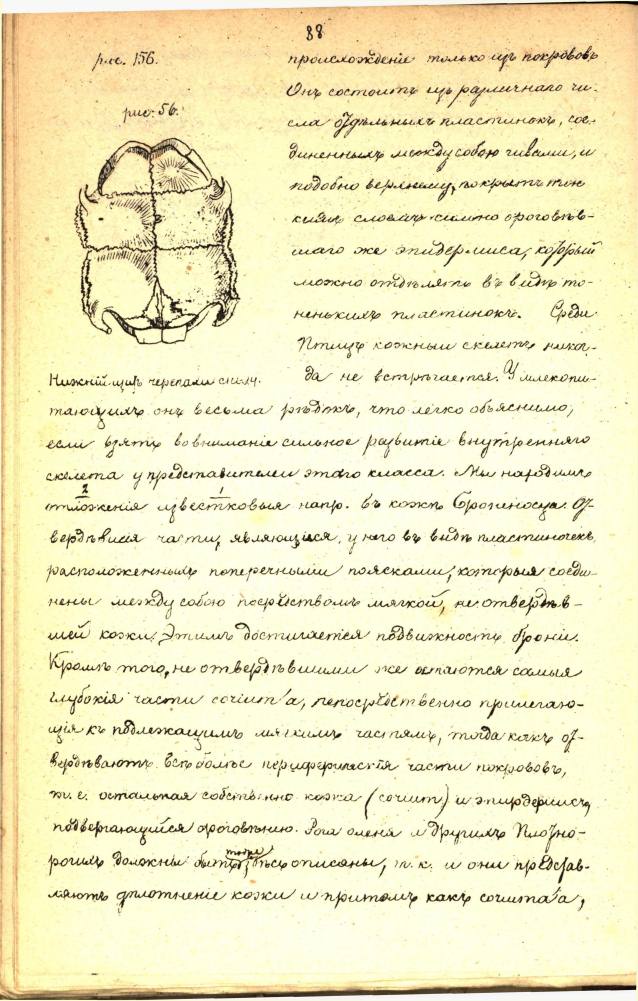 88
рис. 156.
рис. 56.
происхожденіе только изъ покрововъ
Онъ состоитъ изъ различнаго чи-
сла отдѣльныхъ пластинокъ, сое-
диненныхъ между собою швами, и
подобно верхнему, покрытъ тон
кимъ слоемъ сильно ороговѣв-
шаго же эпидермиса, который
можно отдѣлять въ видѣ то-
ненькихъ пластинокъ. Среди
Птицъ кожный скелетъ никог-
Нижній щитъ черепахи снизу.
да не встрѣчается. У млекопи-
тающихъ онъ весьма рѣдокъ, что легко объяснимо,
если взять во вниманіе сильное развитіе внутренняго
скелета у представителей этого класса. Мы находимъ
2 1
отложенія известковыя напр. въ кожѣ Броненосца. От-
вердѣвшія части, являющіяся, у него въ видѣ пластиночекъ,
расположенныхъ поперечными поясками, которыя соеди-
нены между собою посредствомъ мягкой, не отвердѣв-
шей кожи. Этимъ достигается подвижность брони.
Кромѣ того, не отвердѣвшими же остаются самыя
глубокія части corium'a, непосредственно прилегаю-
щія къ подлежащимъ мягкимъ частямъ, тогда какъ от-
вердѣваютъ всѣ болѣе периферическія части покрововъ,
т. е. остальная собственно кожа (corium) и эпидермисъ,
подвергающійся ороговѣнію. Рога оленя и другихъ Плотно-
рогихъ должны быть тоже здѣсь описаны, т. к. и они представ-
ляютъ уплотненіе кожи и притомъ какъ corium'a,